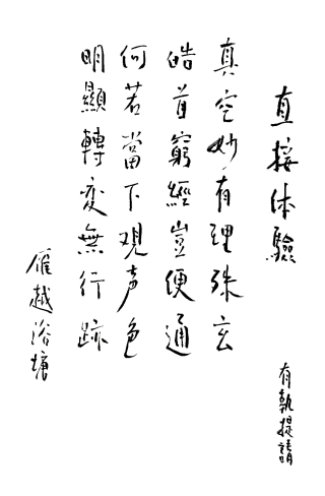 直接体驗
有執提請
真空妙有理殊玄
皓首窮經豈便通
何若當下观声色
明顯轉变無行跡
雁越浴塘